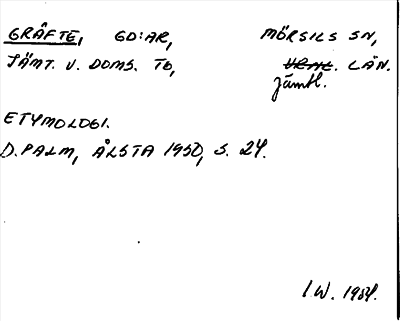 GRÄFTE, GD:AR, MÖRSILS SN,
JÄMT. V. DOMS. TB, LÄN.
jämtl.
ETYMOLOGI.
D. PALM, ÅLSTA 1950, S. 24.
I.W. 1984.